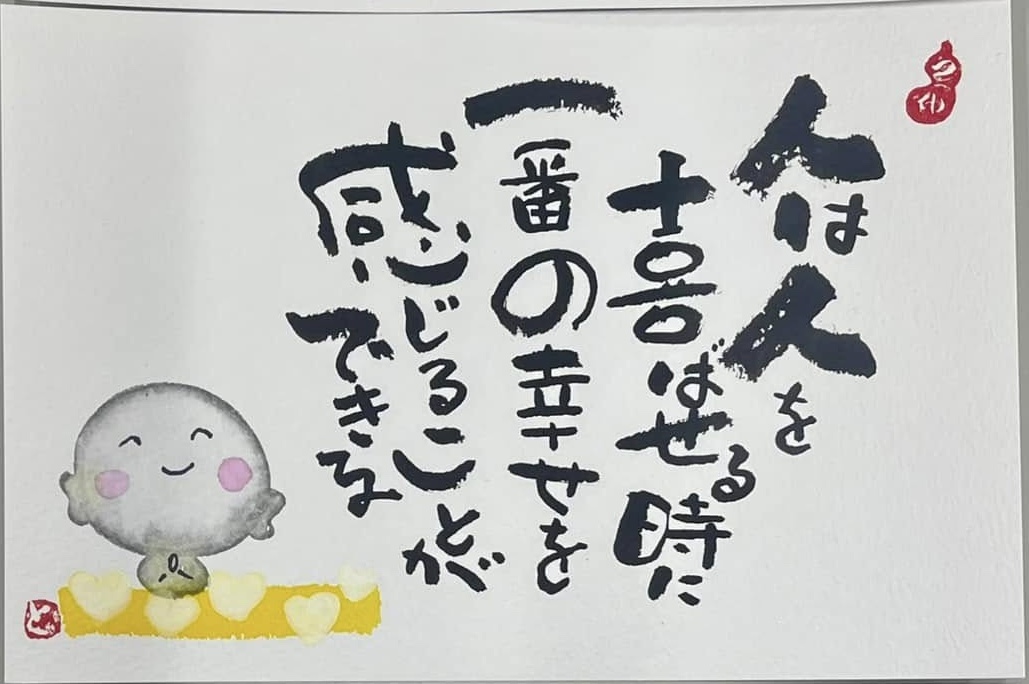 人は人を
喜ばせる時に
一番の幸せを
感じることが
できる